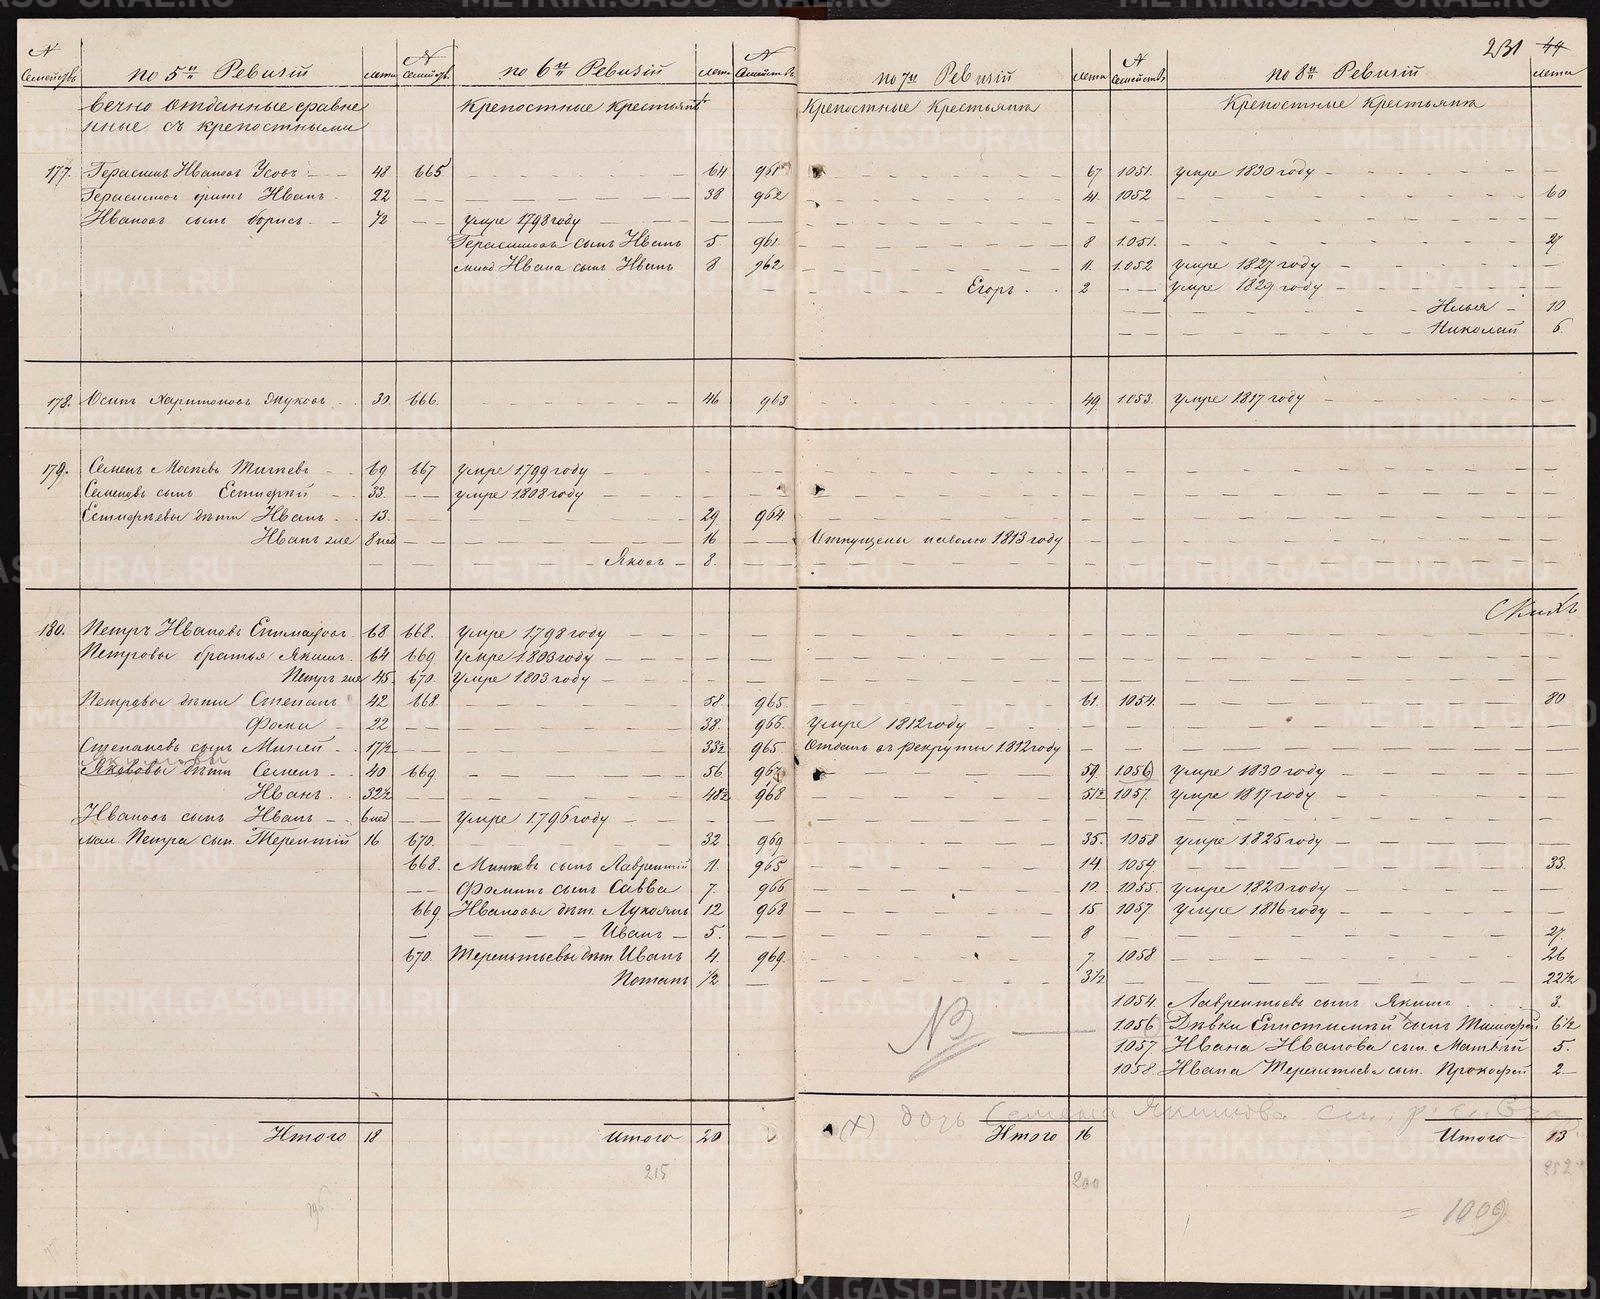 231 44
N Семействъ по 5й Ревизіи лета N Семейств. по 6й Ревизіи лета N Семейств. по 7й Ревизіи лета N Семейств. по 8й Ревизіи лета
вечно отданные сравне Крепостные Крестьяня Крепостные Крестьяня Крепостные Крестьяня
нные съ крепостными
177. Герасимъ Ивановъ Усовъ 48 665 64 961 67 1051. умре 1830 году
Герасимов Иванъ 22 38 962 41 1052 60
Ивановъ сынъ Борисъ 12 умре 1798 году
Герасимовъ сынъ Иванъ 5. 961. 8 1051. 27
Ивана сынъ Иванъ 8 962 11. 1052 умре 1827 году
Егоръ 2 умре 1829 году
Илья 10
Николай 6.
178. Осипъ Харитоновъ Жуковъ 30. 666. 46 963 49. 1053. умре 1817 году
179. Семенъ 69 667 умре 1799 году
Семеновъ сынъ Естифей 33. умре 1808 году
Естифеевы дети Иванъ 13. 29. 964.
Иванъ же 8 нед 16 Отпущены наволю 1813 году
Яковъ 8.
180. Петръ Ивановъ 68 668. умре 1798 году
Петровы братья Якимъ. 64 669. умре 1803 году
Петръ же 45. 670. умре 1803 году
Петровы дети Степанъ 42 668. 58. 965. 61. 1054. 80
Фома 22 38. 966. Умре 1812 году
Степановъ сынъ Миней 17½ 33½ 965 Отданъ въ рекруты 1812 году
Якимовы
Яковы дети Семенъ 40 669. 56 967. 59. 1056) умре 1830 году
Иванъ 32½ 48½ 968 51½ 1057. умре 1817 году
Ивановъ сынъ Иванъ 6 нед умре 1796 году
Петра сын. Терентій 16 670. 32 969 35. 1058 умре 1825 году
668. Минеевъ сынъ Лаврентій 11. 965 14. 1054. 33.
Фоминъ сынъ Савва 7. 966 10. 1055. умре 1820 году
669. Ивановы дет. Лукоянъ 12 968 15 1057. умре 1816 году
Иванъ 5. 8 27.
670. Терентьевы дет. Иванъ 4. 969. 7. 1058 26
Потапъ ½ 3½ 22½
1054. Лаврентьевъ сынъ Якимъ 3.
NB 1056) Девки Епистимьи сынъ Тимофей 6½
1057. Ивана Иванова сын. Матвей 5.
1058. Ивана Терентьева сын. Прокофей 2
(X) дочь Семена Якимова
Итого 18 Итого 20 Итого 16 Итого 13
215 200 252
= 1009